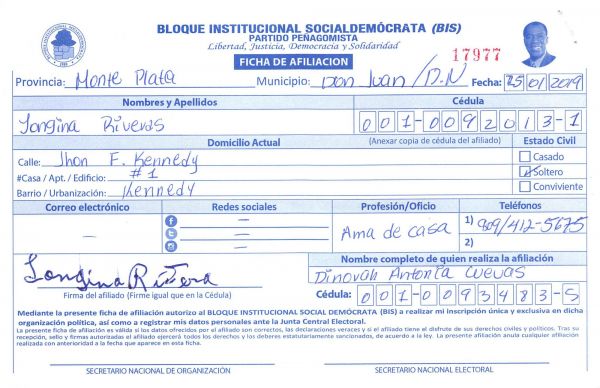 BLOQUE INSTITUCIONAL SOCIALDEMÓCRATA (BIS)
PARTIDO PEÑAGOMISTA
Libertad, Justicia, Democracia y Solidaridad
FICHA DE AFILIACION
17977
Provincia: Monte Plata Municipio: Don Juan/D.N Fecha: 25/01/2019
Nombres y Apellidos Cédula
Longina Riveras 001-0092013-1
Domicilio Actual (Anexar copia de cédula del afiliado) Estado Civil
Calle: Jhon F. Kennedy Casado
#Casa / Apt. / Edificio: #1 Soltero
Barrio / Urbanización: Kennedy Conviviente
Correo electrónico Redes sociales Profesión/Oficio Teléfonos
— — Ama de casa 1) 809/412-5675
—
— 2)
Longina Rivera
Firma del afiliado (Firme igual que en la Cédula)
Nombre completo de quien realiza la afiliación
Dinovah Antonia Cuevas
Cédula: 001-0093483-5
Mediante la presente ficha de afiliación autorizo al BLOQUE INSTITUCIONAL SOCIAL DEMÓCRATA (BIS) a realizar mi inscripción única y exclusiva en dicha
organización política, así como a registrar mis datos personales ante la Junta Central Electoral.
La presente ficha de afiliación es válida si los datos ofrecidos por el afiliado son correctos, las declaraciones veraces y si el afiliado tiene el disfrute de sus derechos civiles y políticos. Tras su
recepción, sello y firmas autorizadas el afiliado ejercerá todos los derechos y los deberes estatutariamente sancionados, de acuerdo a la ley. La presente afiliación anula cualquier afiliación
realizada con anterioridad a la fecha que aparece en esta ficha.
SECRETARIO NACIONAL DE ORGANIZACIÓN SECRETARIO NACIONAL ELECTORAL